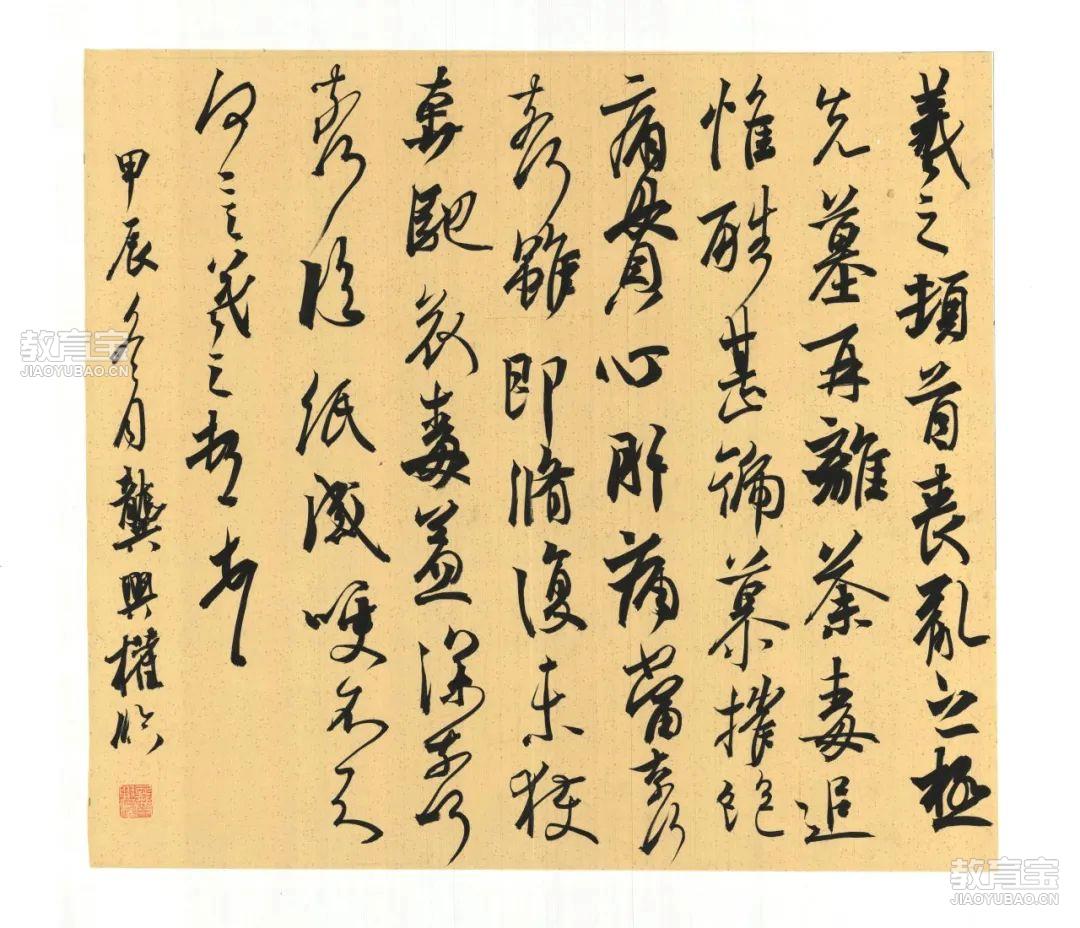 羲之頓首喪亂之極
先墓再離荼毒追
惟酷甚號慕摧絕
痛貫心肝痛當奈何
奈何雖即脩復未獲
奔馳哀毒益深奈何
奈何臨紙感哽不知
何言羲之頓首頓首
甲辰冬月龔興權臨
教育宝
JIAOYUBAO.CN
教育宝
JIAOYUBAO.CN